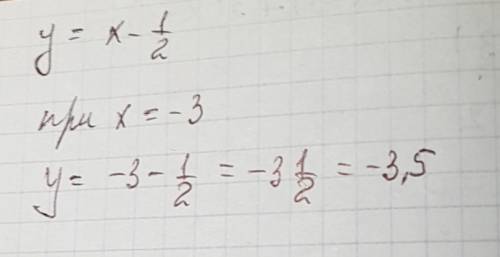 y = x - 1/2
при x = -3
y = -3 - 1/2 = -3 1/2 = -3,5